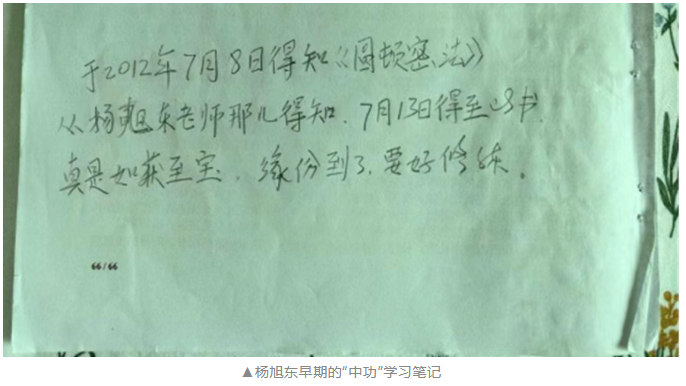 于2012年7月8日得知《圆顿密法》
从杨旭东老师那儿得知.7月13日得至此书.
真是如获至宝.缘份到了.要好修炼.
66/66
▲杨旭东早期的“中功”学习笔记